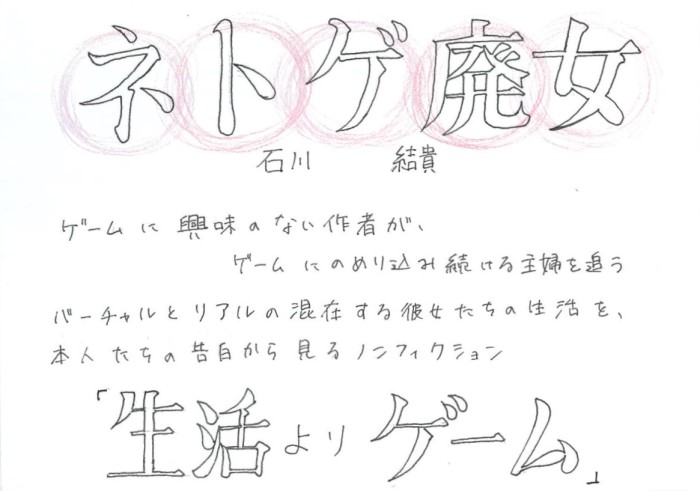 ネトゲ廃女
石川 結貴
ゲームに興味のない作者が、
ゲームにのめり込み続ける主婦を追う
バーチャルとリアルの混在する彼女たちの生活を、
本人たちの告白から見るノンフィクション
「生活よりゲーム」